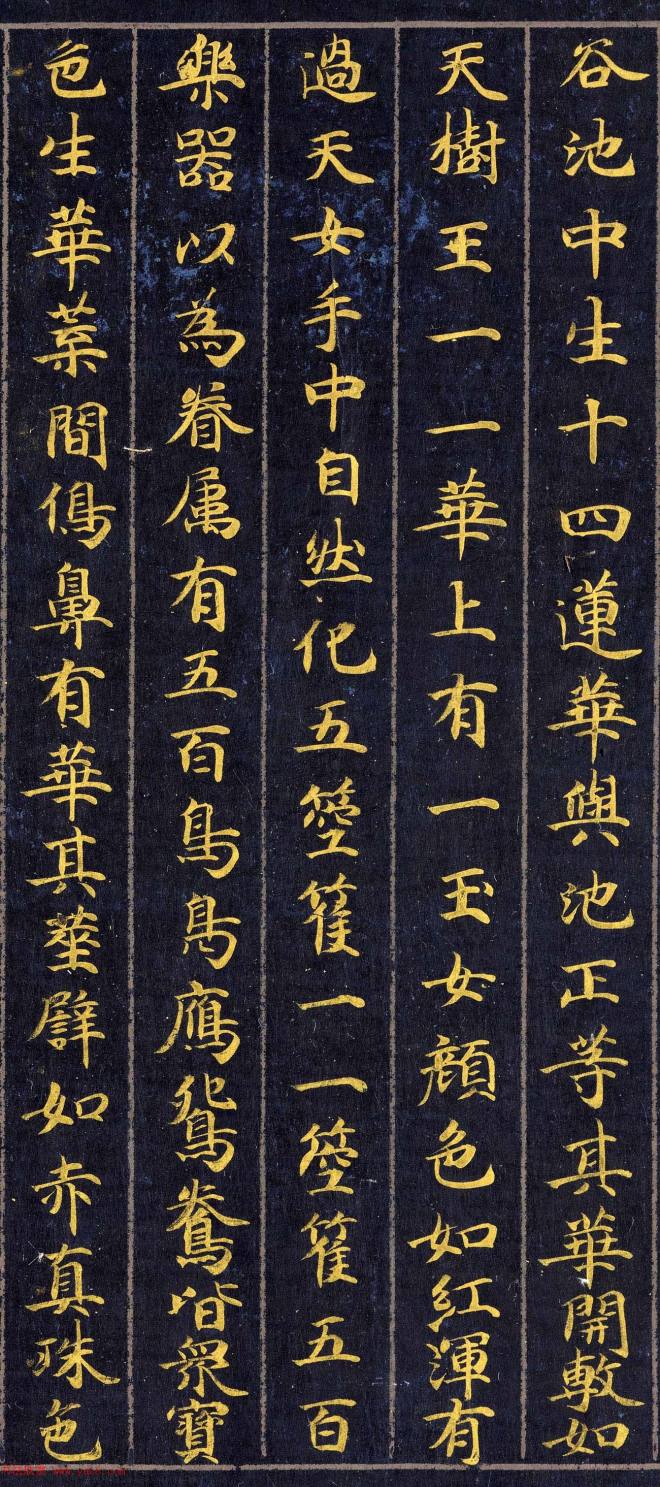 谷池中生十四蓮華與池正等其華開敷如
天樹王一一華上有一玉女顏色如紅渾有
過天女手中自然化五箜篌一一箜篌五百
樂器以為眷属有五百鳥鳧鴈鴛鴦皆眾寶
色生華葉間象鼻有華其莖譬如赤真珠色